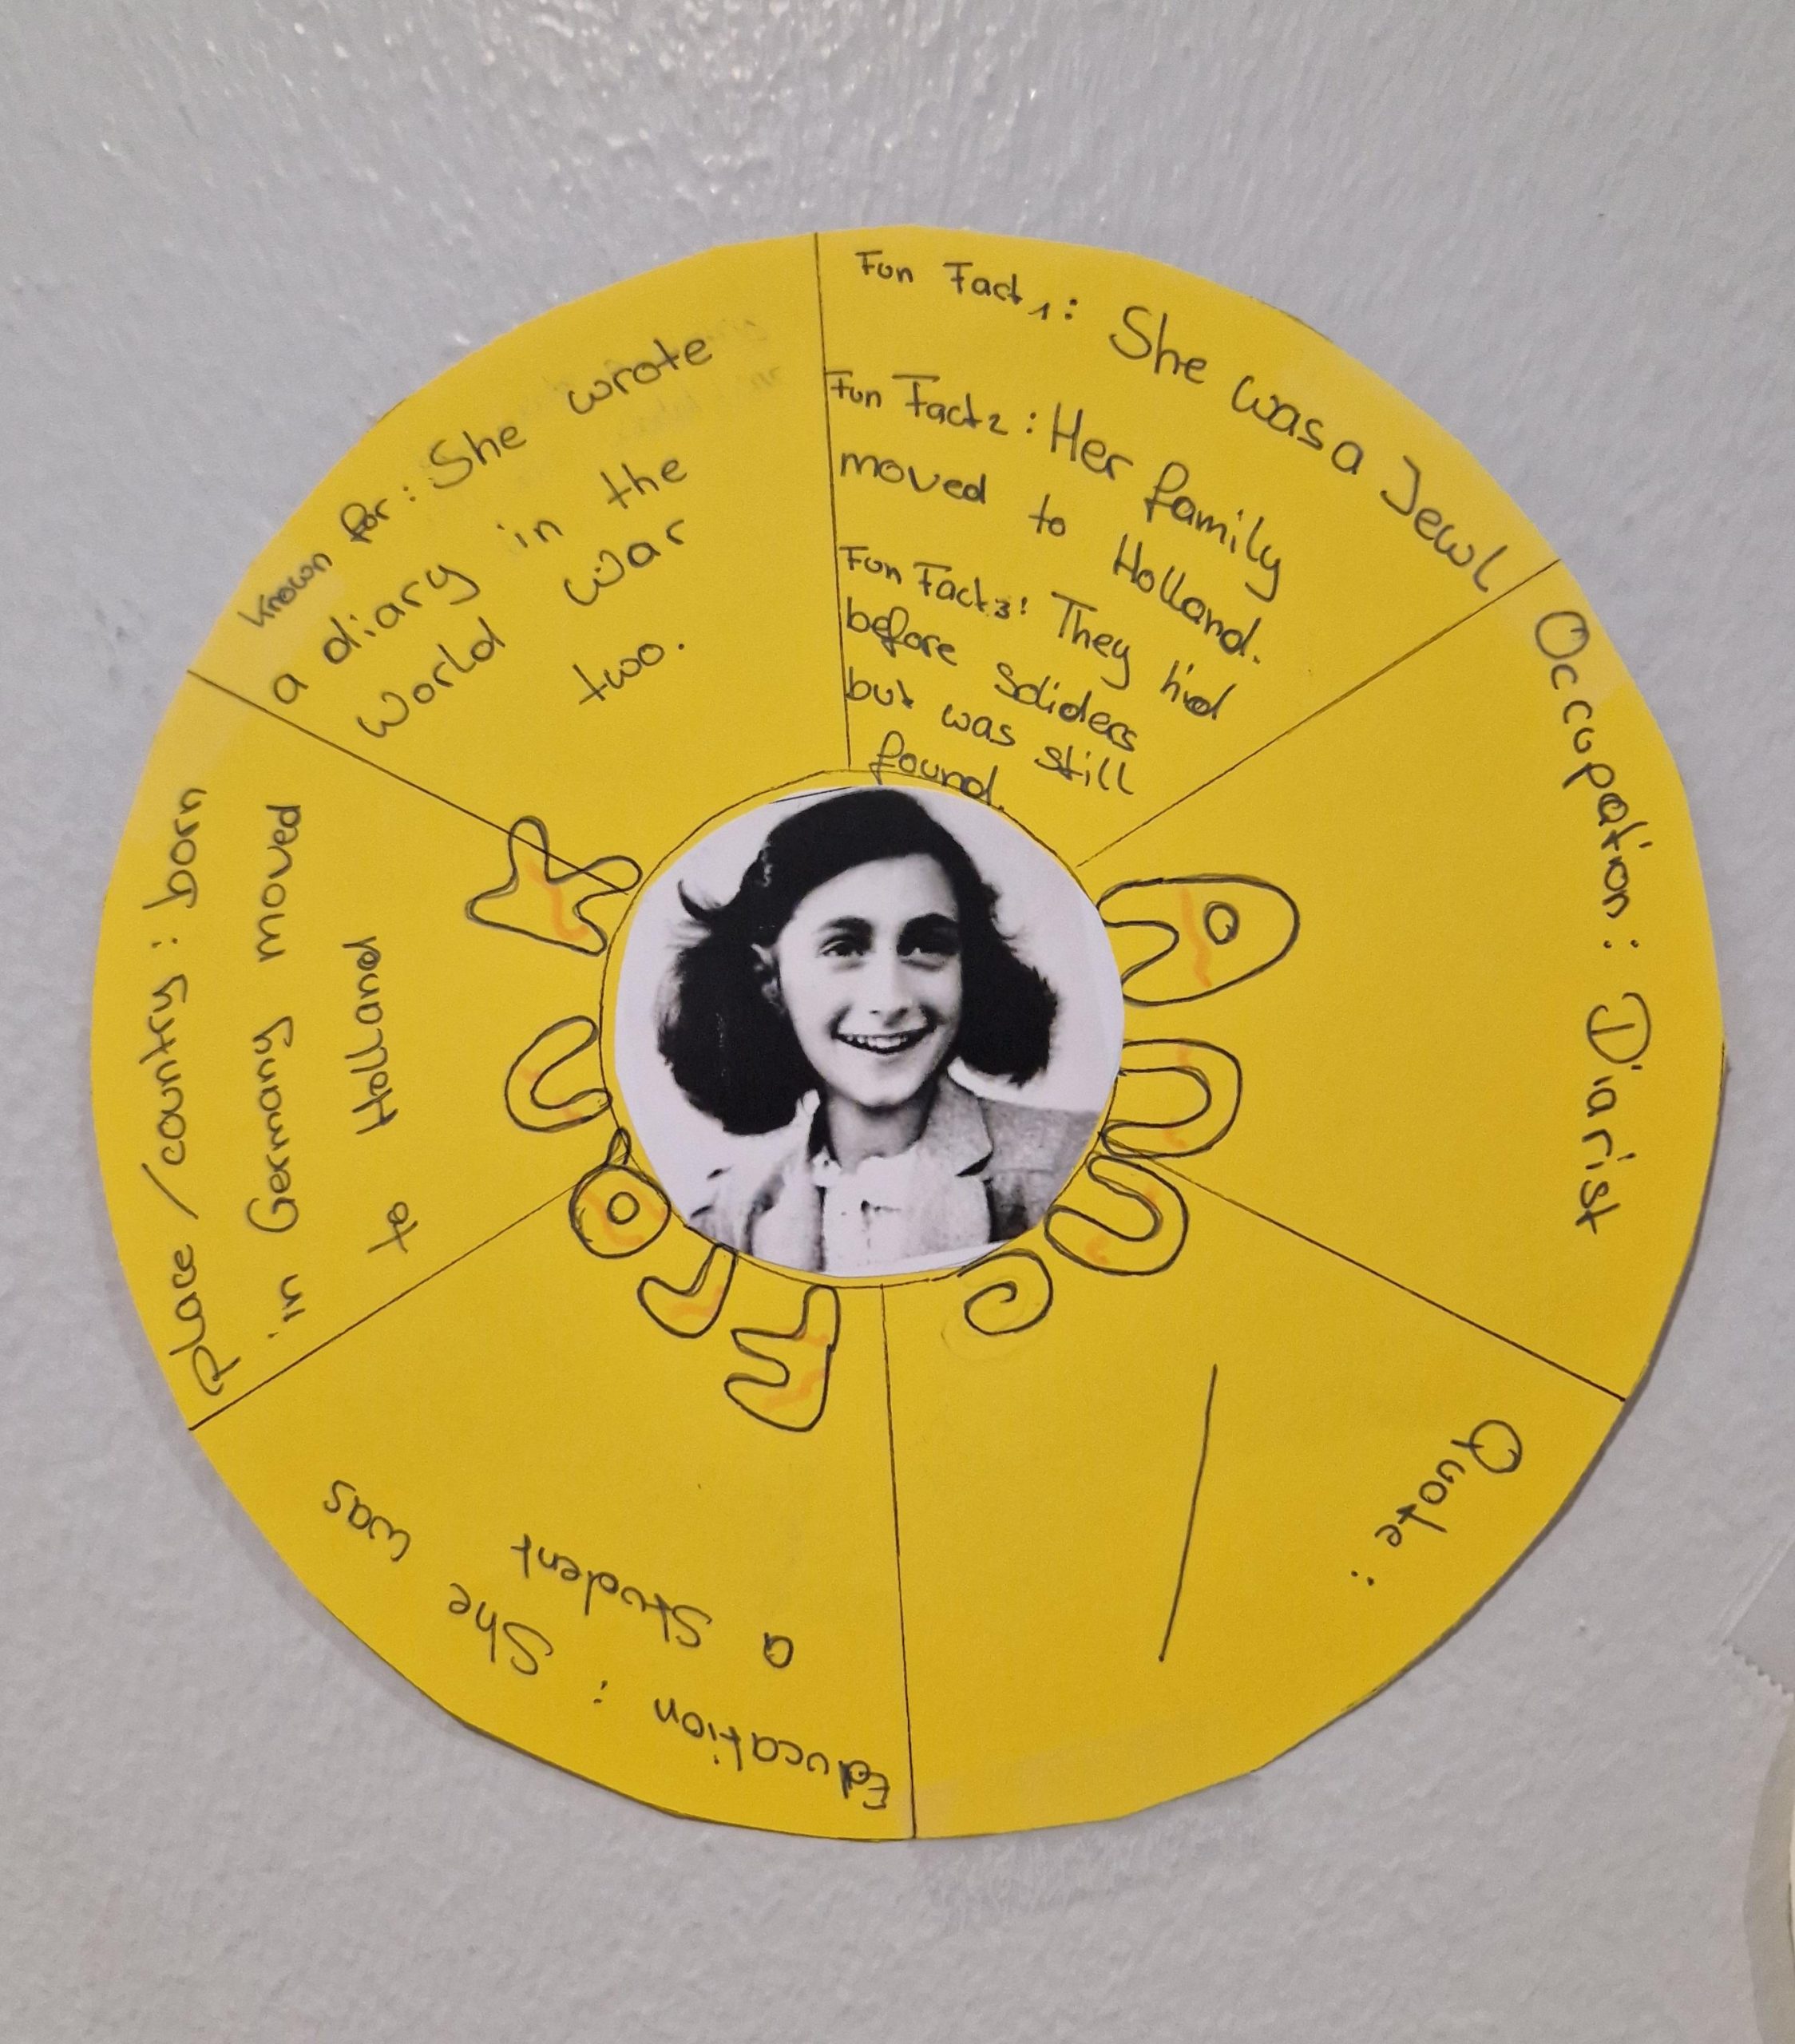 Fun Fact 1: She was a Jewl
Fun Fact 2: Her family
moved to Holland.
Fun Fact 3: They hid
before soliders
but was still
found.
Occupation: Diarist
Quote:
Education: She was
a Student
Place/country: born
in Germany moved
to Holland
Known for: She wrote
a diary in the
World War
two.
ANNE FRANK